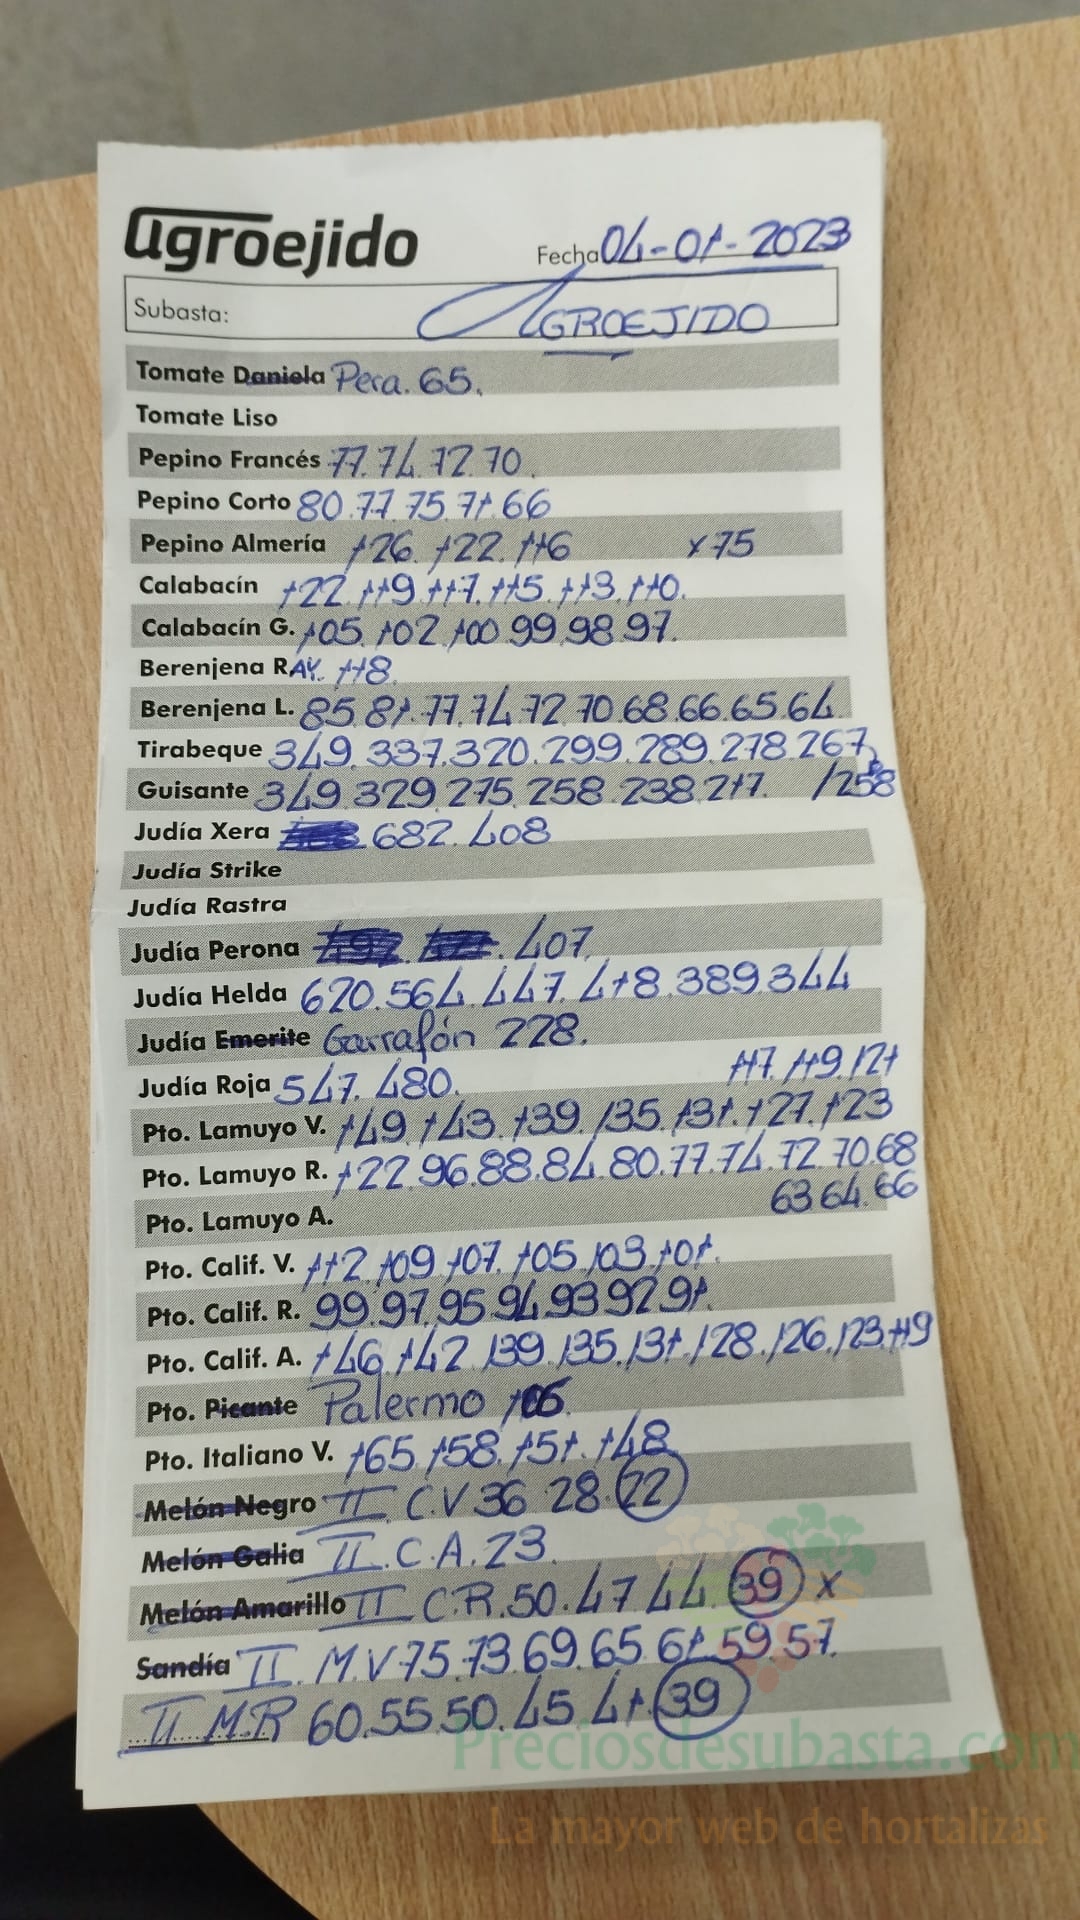 agroejido
Fecha 04-01-2023
Subasta: AGROEJIDO
Tomate Daniela Pera. 65.
Tomate Liso
Pepino Francés 77.74.72.70.
Pepino Corto 80.77.75.71.66
Pepino Almería 126.122.116 x75
Calabacín 122.119.117.115.113.110.
Calabacín G. 105.102.100.99.98.97.
Berenjena RAY. 118.
Berenjena L. 85.81.77.74.72.70.68.66.65.64
Tirabeque 349.337.320.299.289.278.267
Guisante 349.329.275.258.238.217. /258
Judía Xera 682.408
Judía Strike
Judía Rastra
Judía Perona 407
Judía Helda 620.564.447.418.389.344
Judía Emerite Garrafón 228.
Judía Roja 547.480.
117.119.121
Pto. Lamuyo V. 149.143.139.135.131.127.123
Pto. Lamuyo R. 122.96.88.84.80.77.74.72.70.68
63 64.66
Pto. Lamuyo A.
Pto. Calif. V. 112.109.107.105.103.101.
Pto. Calif. R. 99.97.95.94.93.92.91.
Pto. Calif. A. 146.142.139.135.131.128.126.123.119
Pto. Picante Palermo 106.
Pto. Italiano V. 165.158.151.148
Melón Negro II C.V 36 28.22
Melón Galia II.C.A.23.
Melón Amarillo II C.R.50.47 44.39 x
Sandía II. M.V 75.73.69.65.61.59.57.
II M.R 60.55.50.45 41.39
Preciosdesubasta.com
La mayor web de hortalizas